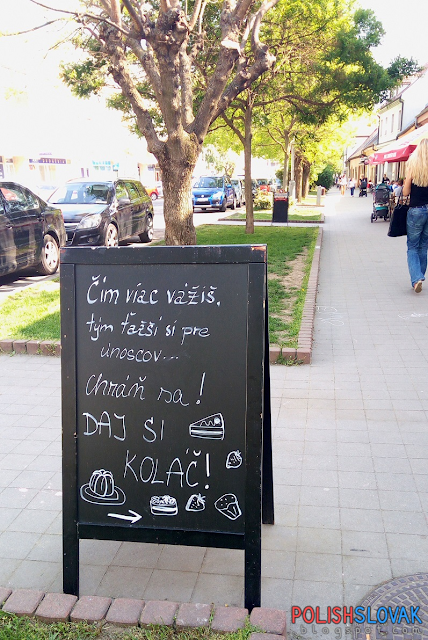 Čím viac vážiš,
tým ťažší si pre
únoscov...
chráň sa!
DAJ SI
KOLÁČ!
POLISHSLOVAK
blogspot.com